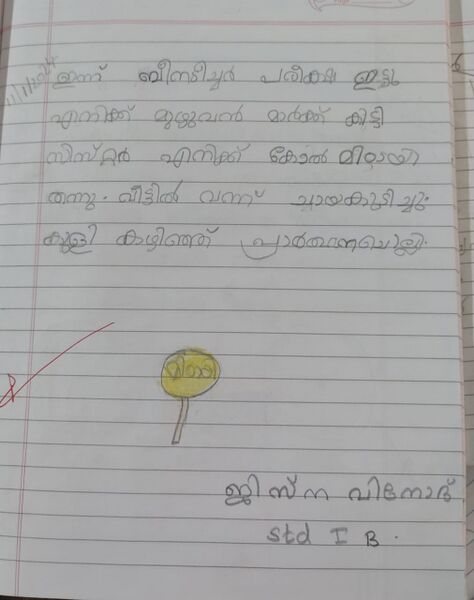 11/11/2024
ഇന്ന് ബീനടീച്ചർ പരീക്ഷ ഇട്ടു
എനിക്ക് മുഴുവൻ മാർക്ക് കിട്ടി
സിസ്റ്റർ എനിക്ക് കോൽ മിഠായി
തന്നു. വീട്ടിൽ വന്ന് ചായകുടിച്ചു.
കുളി കഴിഞ്ഞ് പ്രാർത്ഥനചൊല്ലി.
മിഠായി
ജിസ്ന വിനോദ്
std I B.